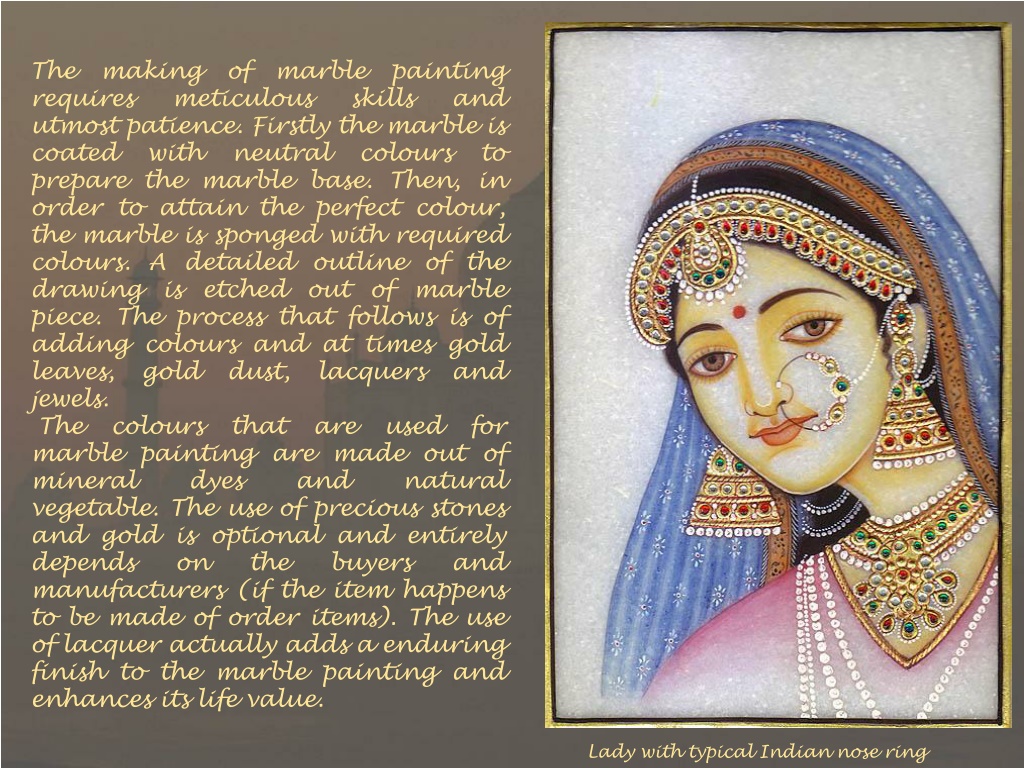 The making of marble painting
requires meticulous skills and
utmost patience. Firstly the marble is
coated with neutral colours to
prepare the marble base. Then, in
order to attain the perfect colour,
the marble is sponged with required
colours. A detailed outline of the
drawing is etched out of marble
piece. The process that follows is of
adding colours and at times gold
leaves, gold dust, lacquers and
jewels.
The colours that are used for
marble painting are made out of
mineral dyes and natural
vegetable. The use of precious stones
and gold is optional and entirely
depends on the buyers and
manufacturers (if the item happens
to be made of order items). The use
of lacquer actually adds a enduring
finish to the marble painting and
enhances its life value.
Lady with typical Indian nose ring